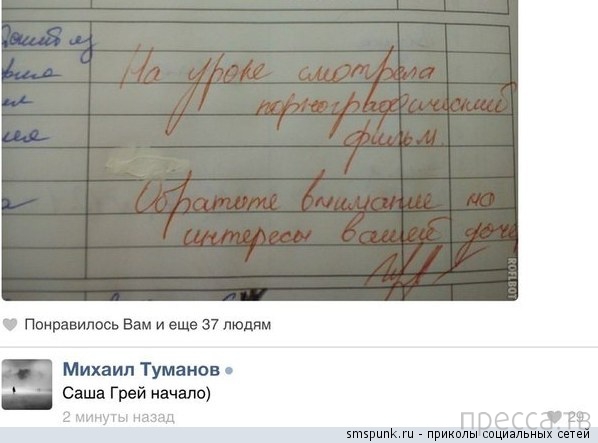 На уроке смотрела
порнографический
фильм.
Обратите внимание на
интересы вашей доче
ROFLBOT
Понравилось Вам и еще 37 людям
Михаил Туманов
Саша Грей начало)
2 минуты назад
29
пресса.тв
smspunk.ru - приколы социальных сетей